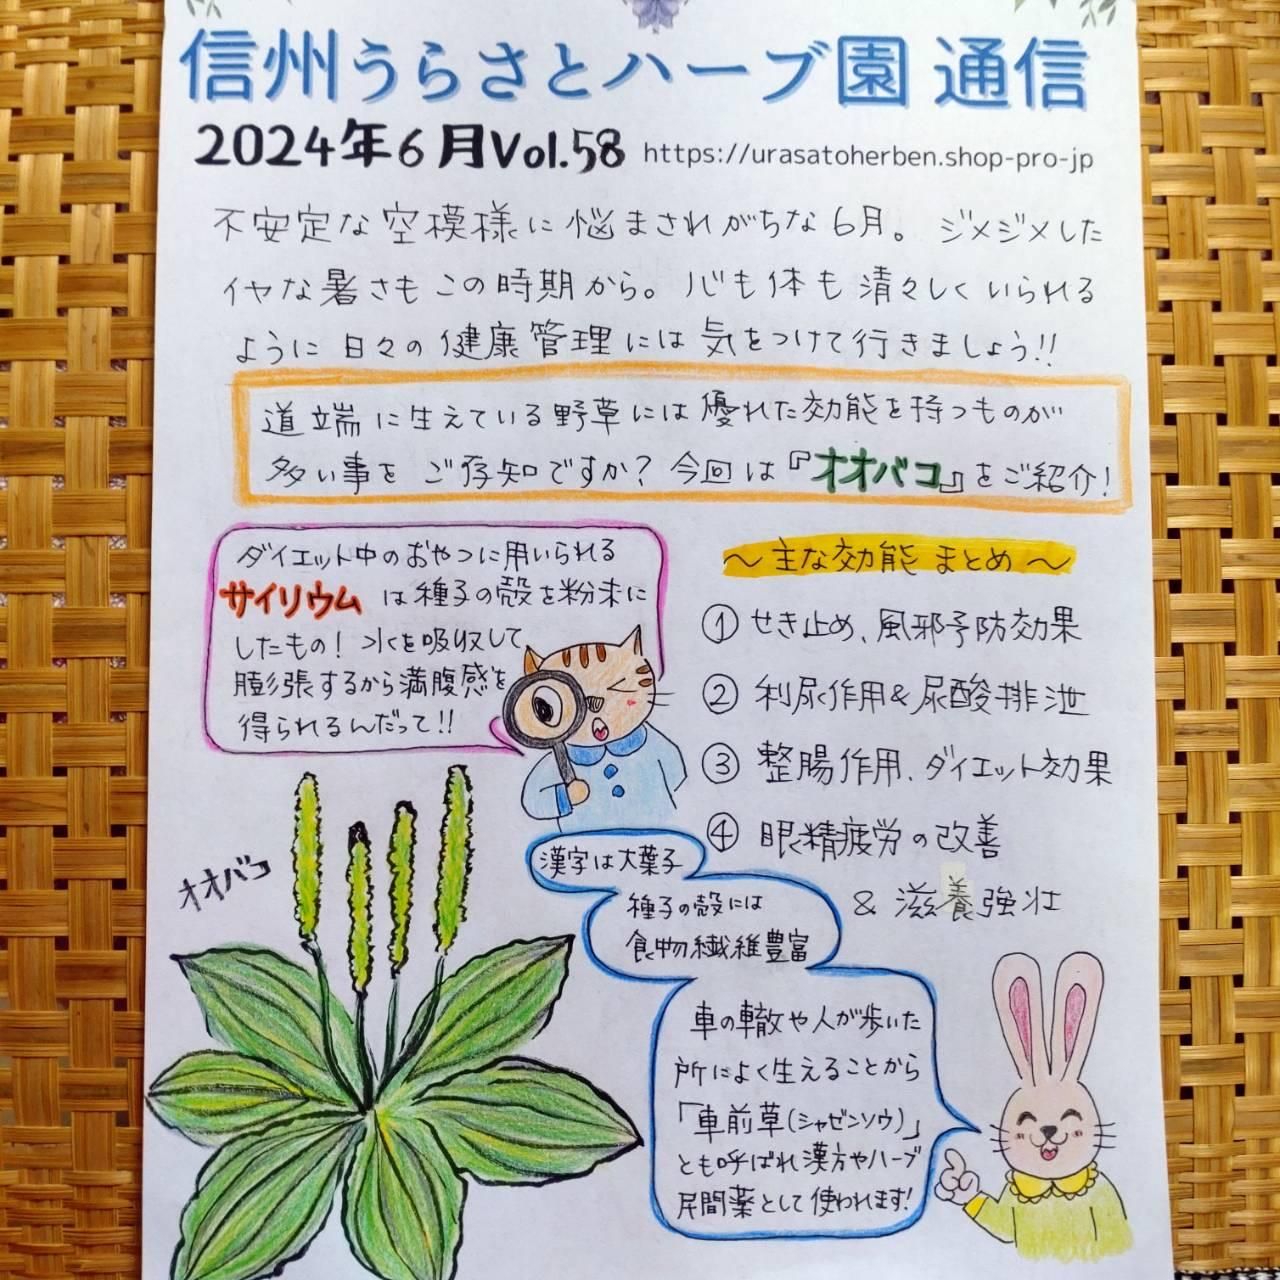 信州うらさとハーブ園 通信
2024年6月Vol.58 https://urasatoherben.shop-pro-jp
不安定な空模様に悩まされがちな6月。ジメジメした
イヤな暑さもこの時期から。心も体も清々しくいられる
ように日々の健康管理には気をつけて行きましょう!!
道端に生えている野草には優れた効能を持つものが
多い事をご存知ですか?今回は『オオバコ』をご紹介!
ダイエット中のおやつに用いられる
サイリウムは種子の殻を粉末に
したもの!水を吸収して
膨張するから満腹感を
得られるんだって!!
～主な効能まとめ～
①せき止め、風邪予防効果
②利尿作用&尿酸排泄
③整腸作用、ダイエット効果
④眼精疲労の改善
&滋養強壮
オオバコ
漢字は大葉子
種子の殻には
食物繊維豊富
車の轍や人が歩いた
所によく生えることから
「車前草(シャゼンソウ)」
とも呼ばれ漢方やハーブ
民間薬として使われます!